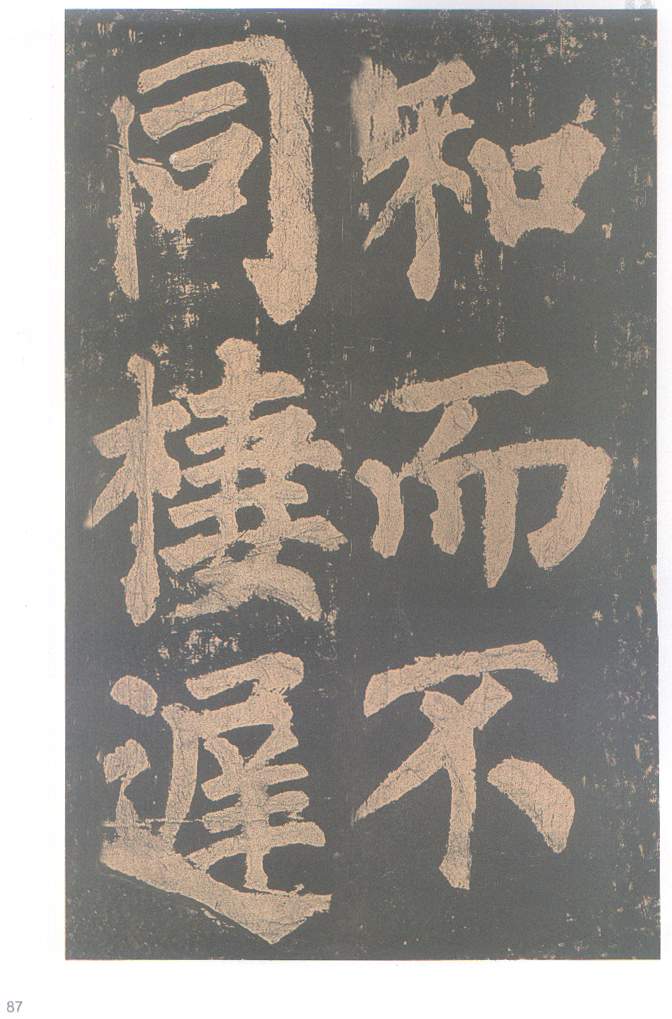 和而不
同棲遲
87